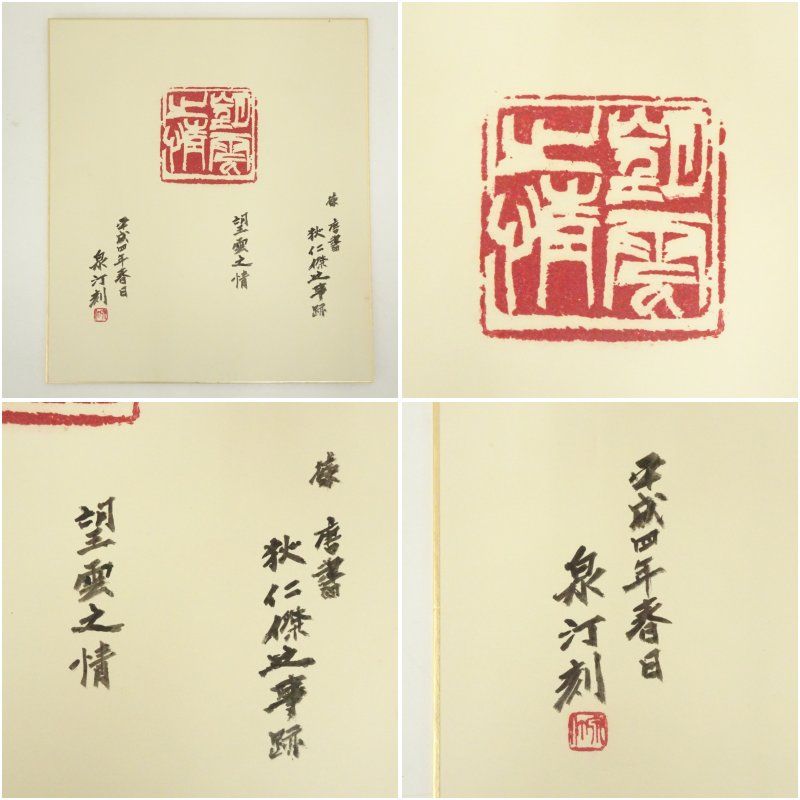 望雲
之情
唐書
狄仁傑之事跡
望雲之情
平成四年春日
泉汀刻
望雲
之情
唐書
狄仁傑之事跡
望雲之情
平成四年春日
泉汀刻